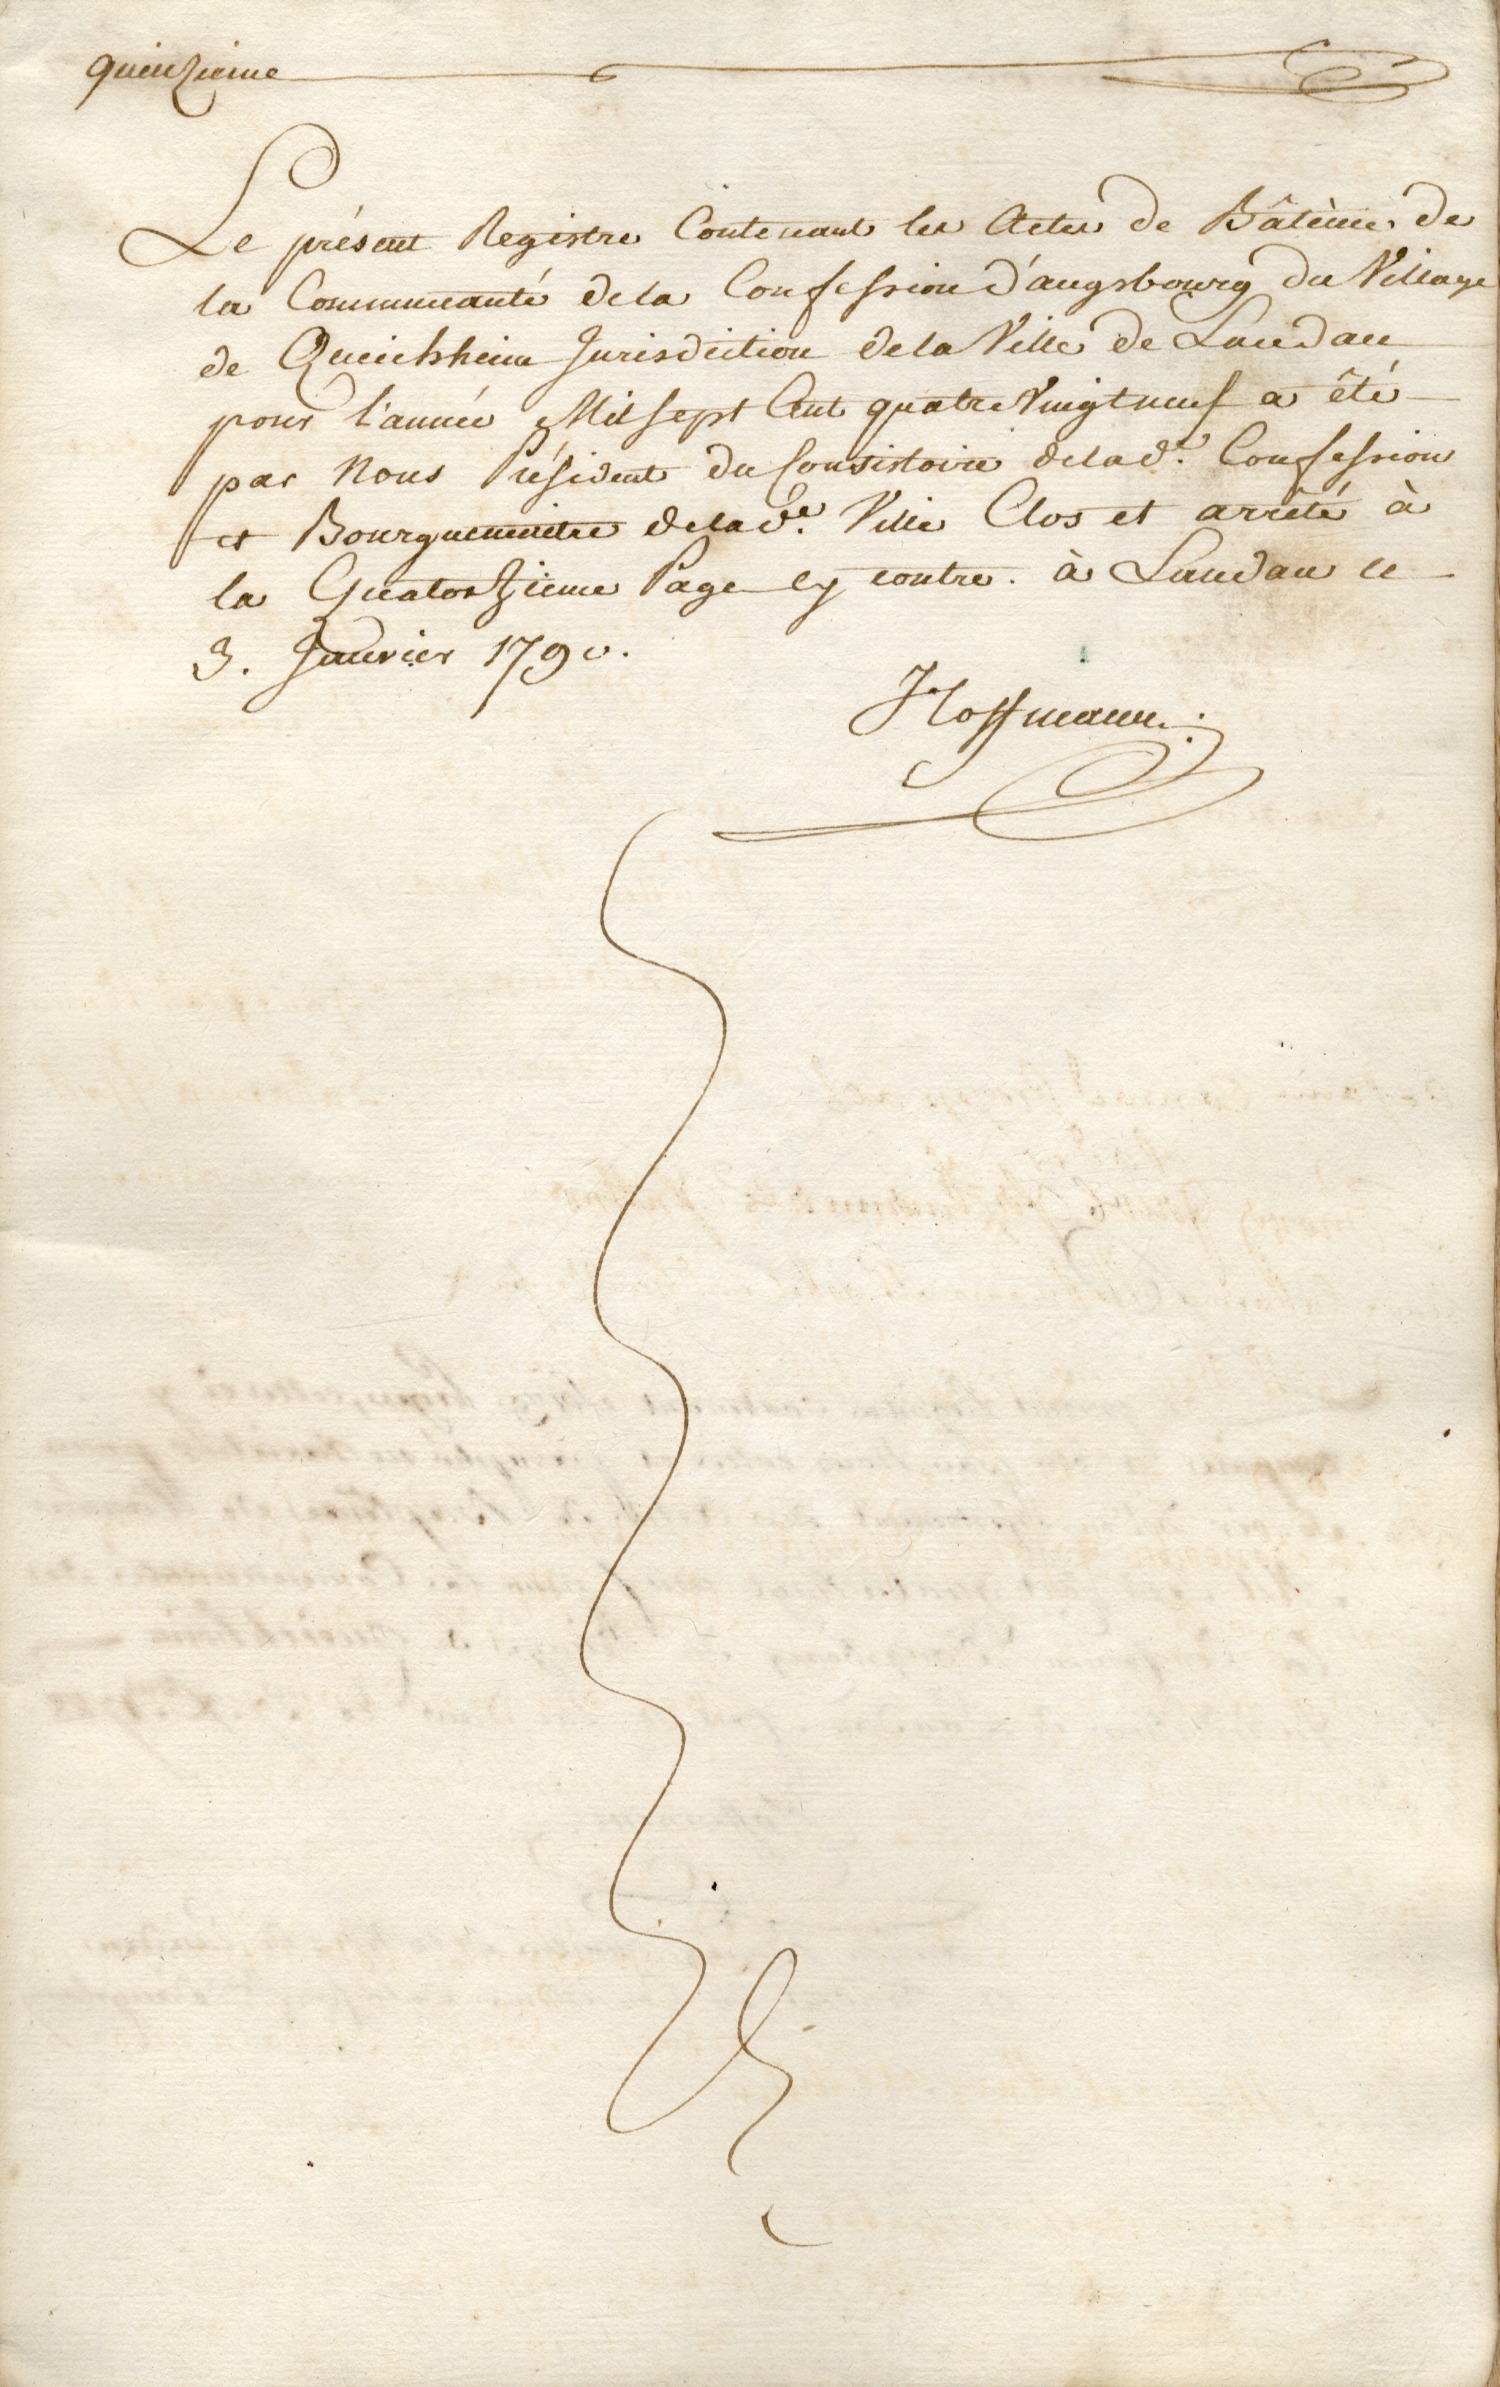 quinzieme
Le présent Registre Contenant les Actes de Bâtême de
la Communauté de la Confession d'augsbourg du Village
de Queichheim Jurisdiction de la Ville de Landau
pour l'année Mil sept Cent quatre Vingt neuf a été
par Nous Président du Consistoire de la de. Confession
et Bourguemaitre de la de. Ville Clos et arrêté à
la Quatorzieme Page cy contre. à Landau ce
3. Janvier 1790.
Hoffmann.